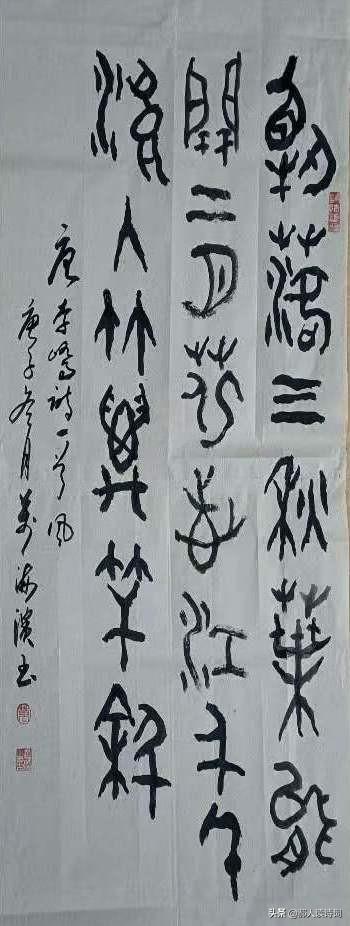 解落三秋葉能
開二月花過江千尺
浪入竹萬竿斜
唐李嶠詩一首風
庚子冬月海濱书
头条